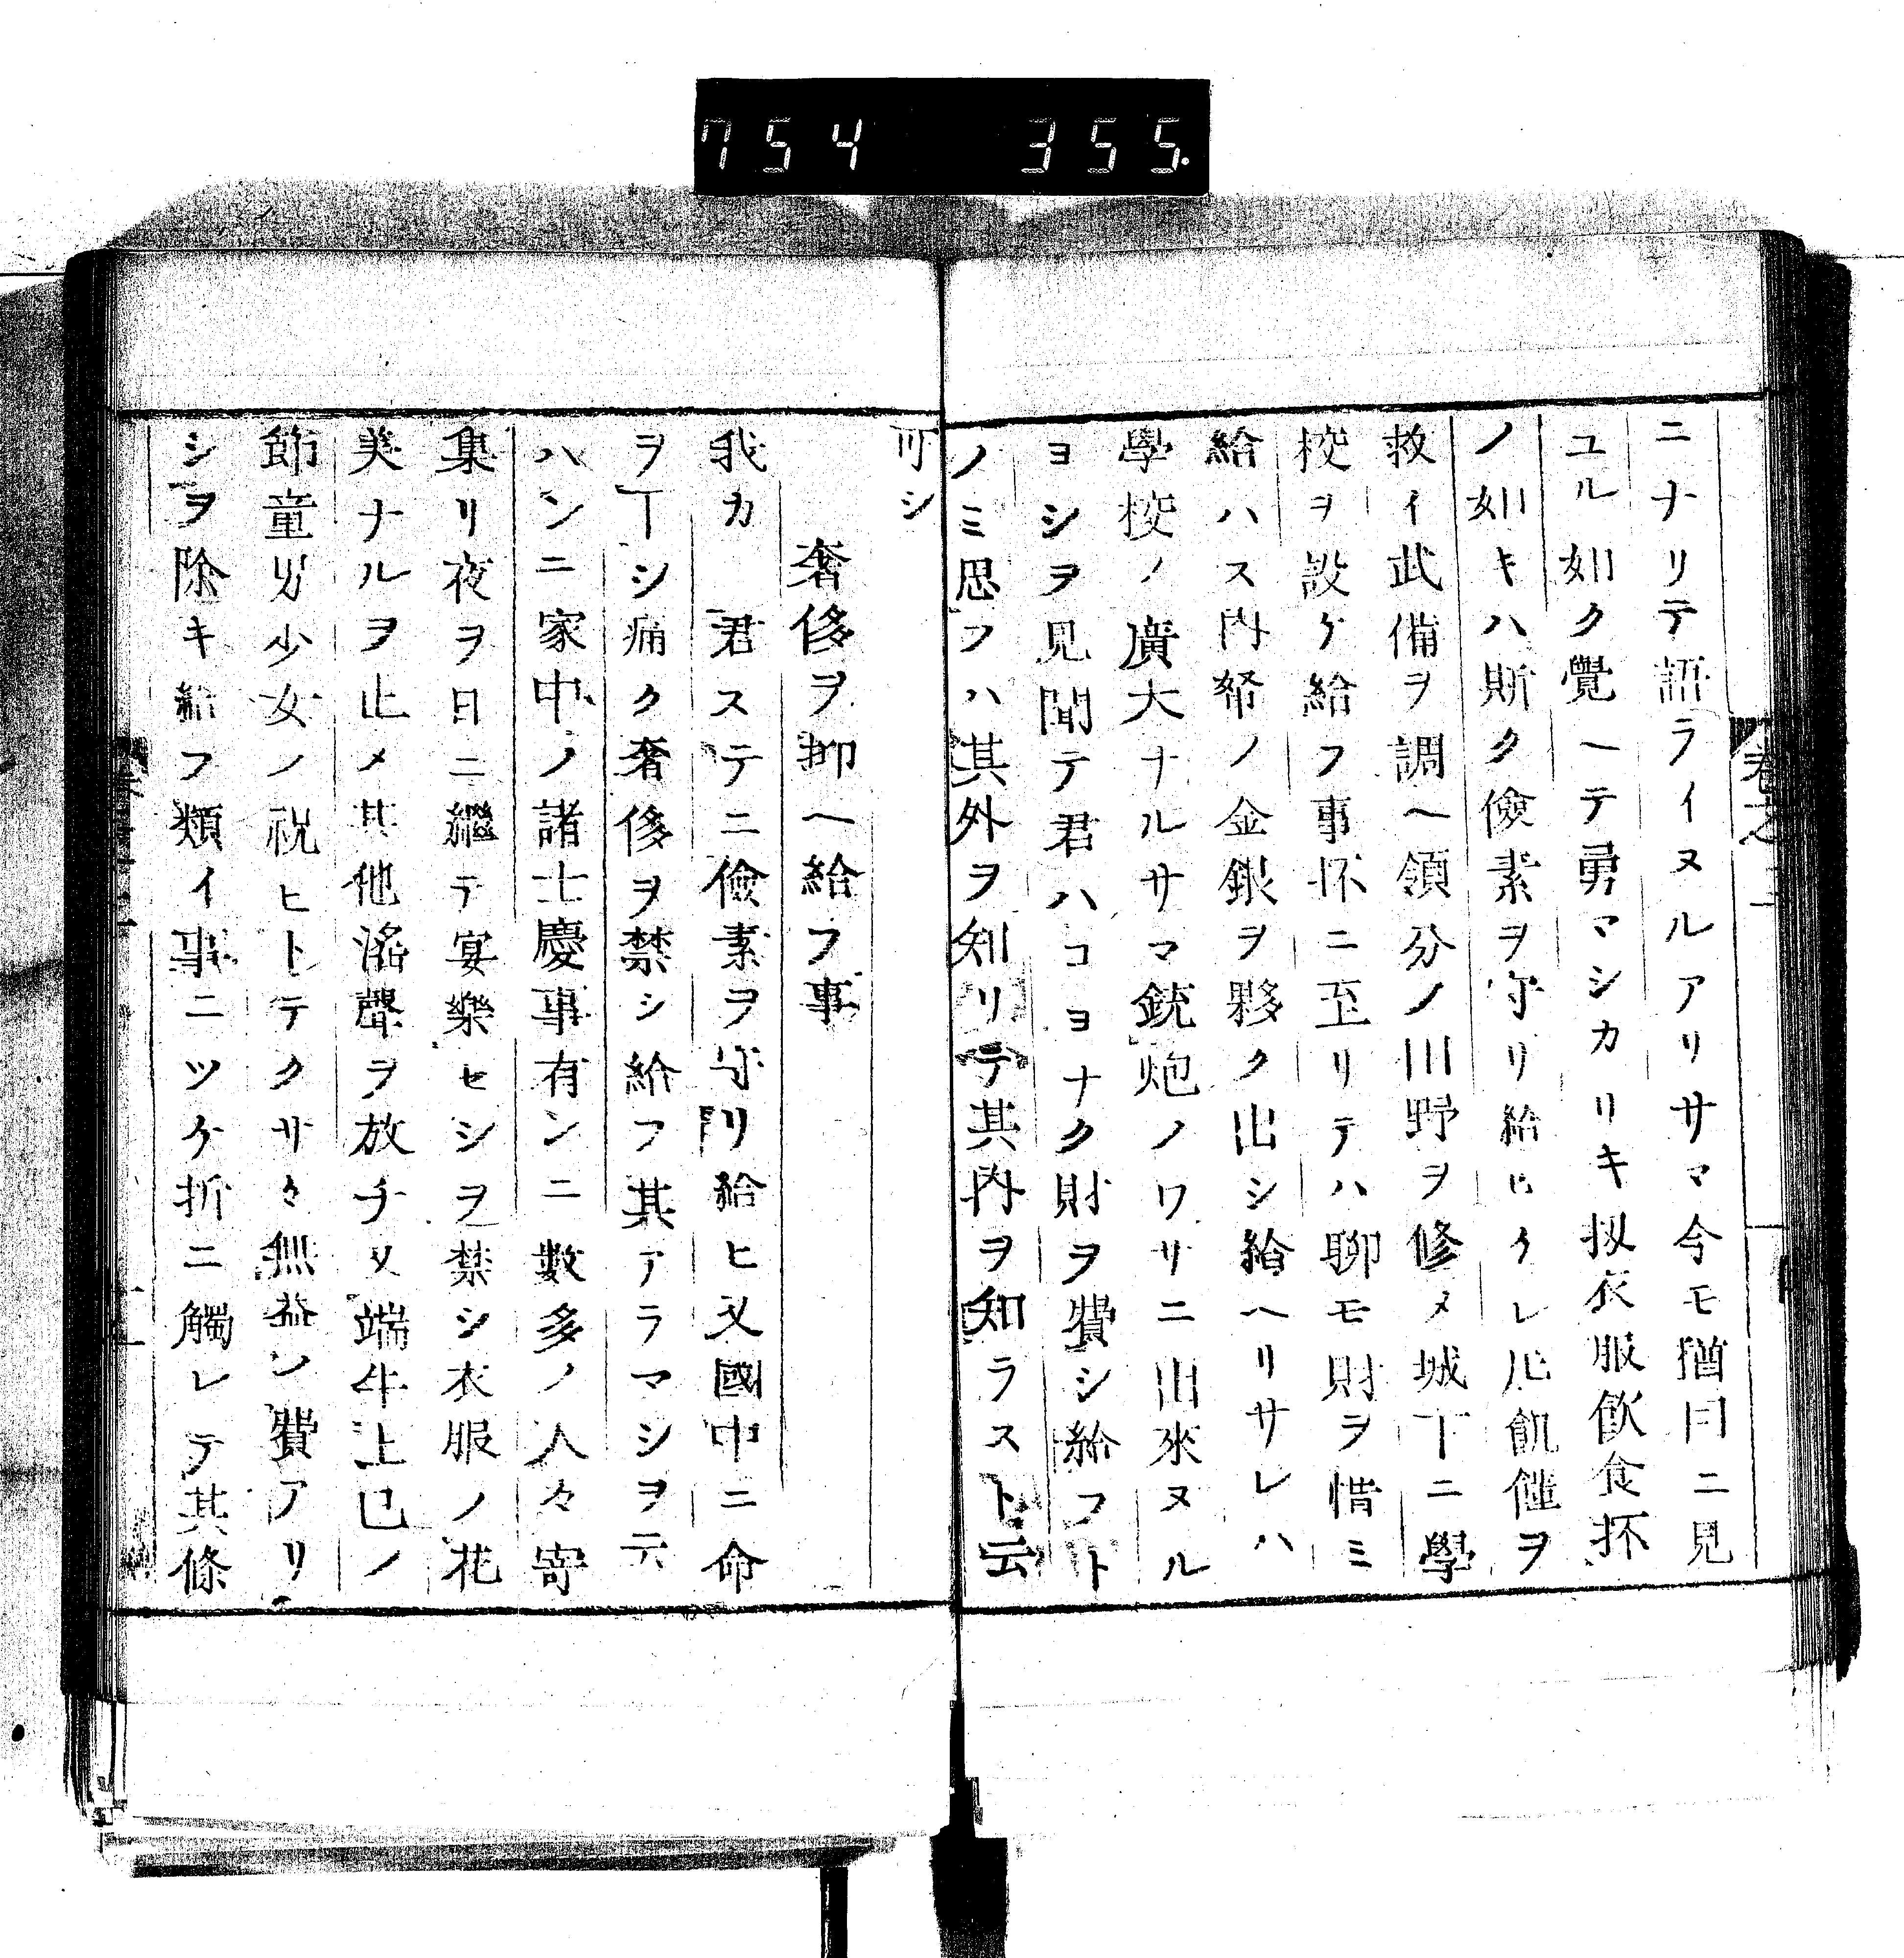 754 355.
ニナリテ語ライヌルアリサマ今モ猶目ニ見
ユル如ク覺ヘテ勇マシカリキ扨衣服飲食抔
ノ如キハ斯ク儉素ヲ守リ給ヒタレ𪜈飢饉ヲ
救イ武備ヲ調ヘ領分ノ川野ヲ修メ城下ニ學
校ヲ設ケ給フ事抔ニ至リテハ聊モ財ヲ惜ミ
給ハス内帑ノ金銀ヲ夥ク出シ給ヘリサレハ
學校ノ廣大ナルサマ銃炮ノワサニ出來ヌル
ヨシヲ見聞テ君ハコヨナク財ヲ費シ給フト
ノミ思フハ其外ヲ知リテ其内ヲ知ラスト云
可シ
奢侈ヲ抑ヘ給フ事
我カ 君ステニ儉素ヲ守リ給ヒ又國中ニ命
ヲ下シ痛ク奢侈ヲ禁シ給フ其アラマシヲ云
ハンニ家中ノ諸士慶事有ンニ數多ノ人々寄
集リ夜ヲ日ニ繼テ宴樂セシヲ禁シ衣服ノ花
美ナルヲ止メ其他滛聲ヲ放チ又端午上巳ノ
節童男少女ノ祝ヒトテクサ々無益ノ費アリ
シヲ除キ給フ類イ事ニツケ折ニ觸レテ其條